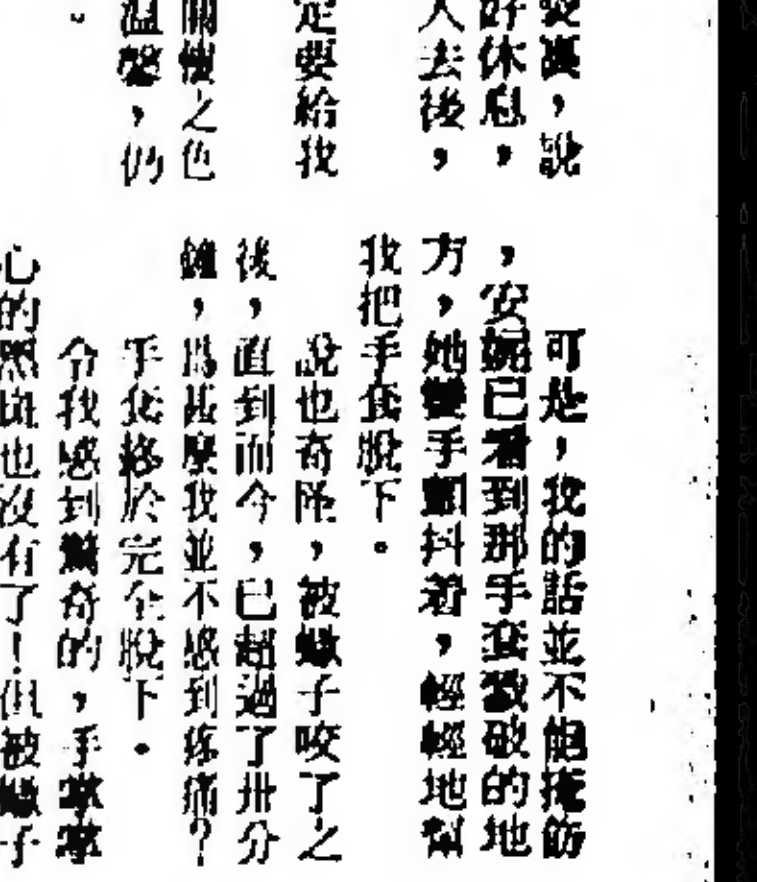 說
好休息，
人去後，
定要給我
之色
溫馨，仍
。
可是，我的話並不能掩飾
，安妮已看到那手套戳破的地
方，她雙手顫抖着，輕輕地幫
我把手套脫下。
說也奇怪，被蠍子咬了之
後，直到而今，已超過了卅分
鐘，爲甚麼我並不感到疼痛？
手套終於完全脫下。
令我感到驚奇的，手掌掌
心的黑斑也沒有了！但被蠍子